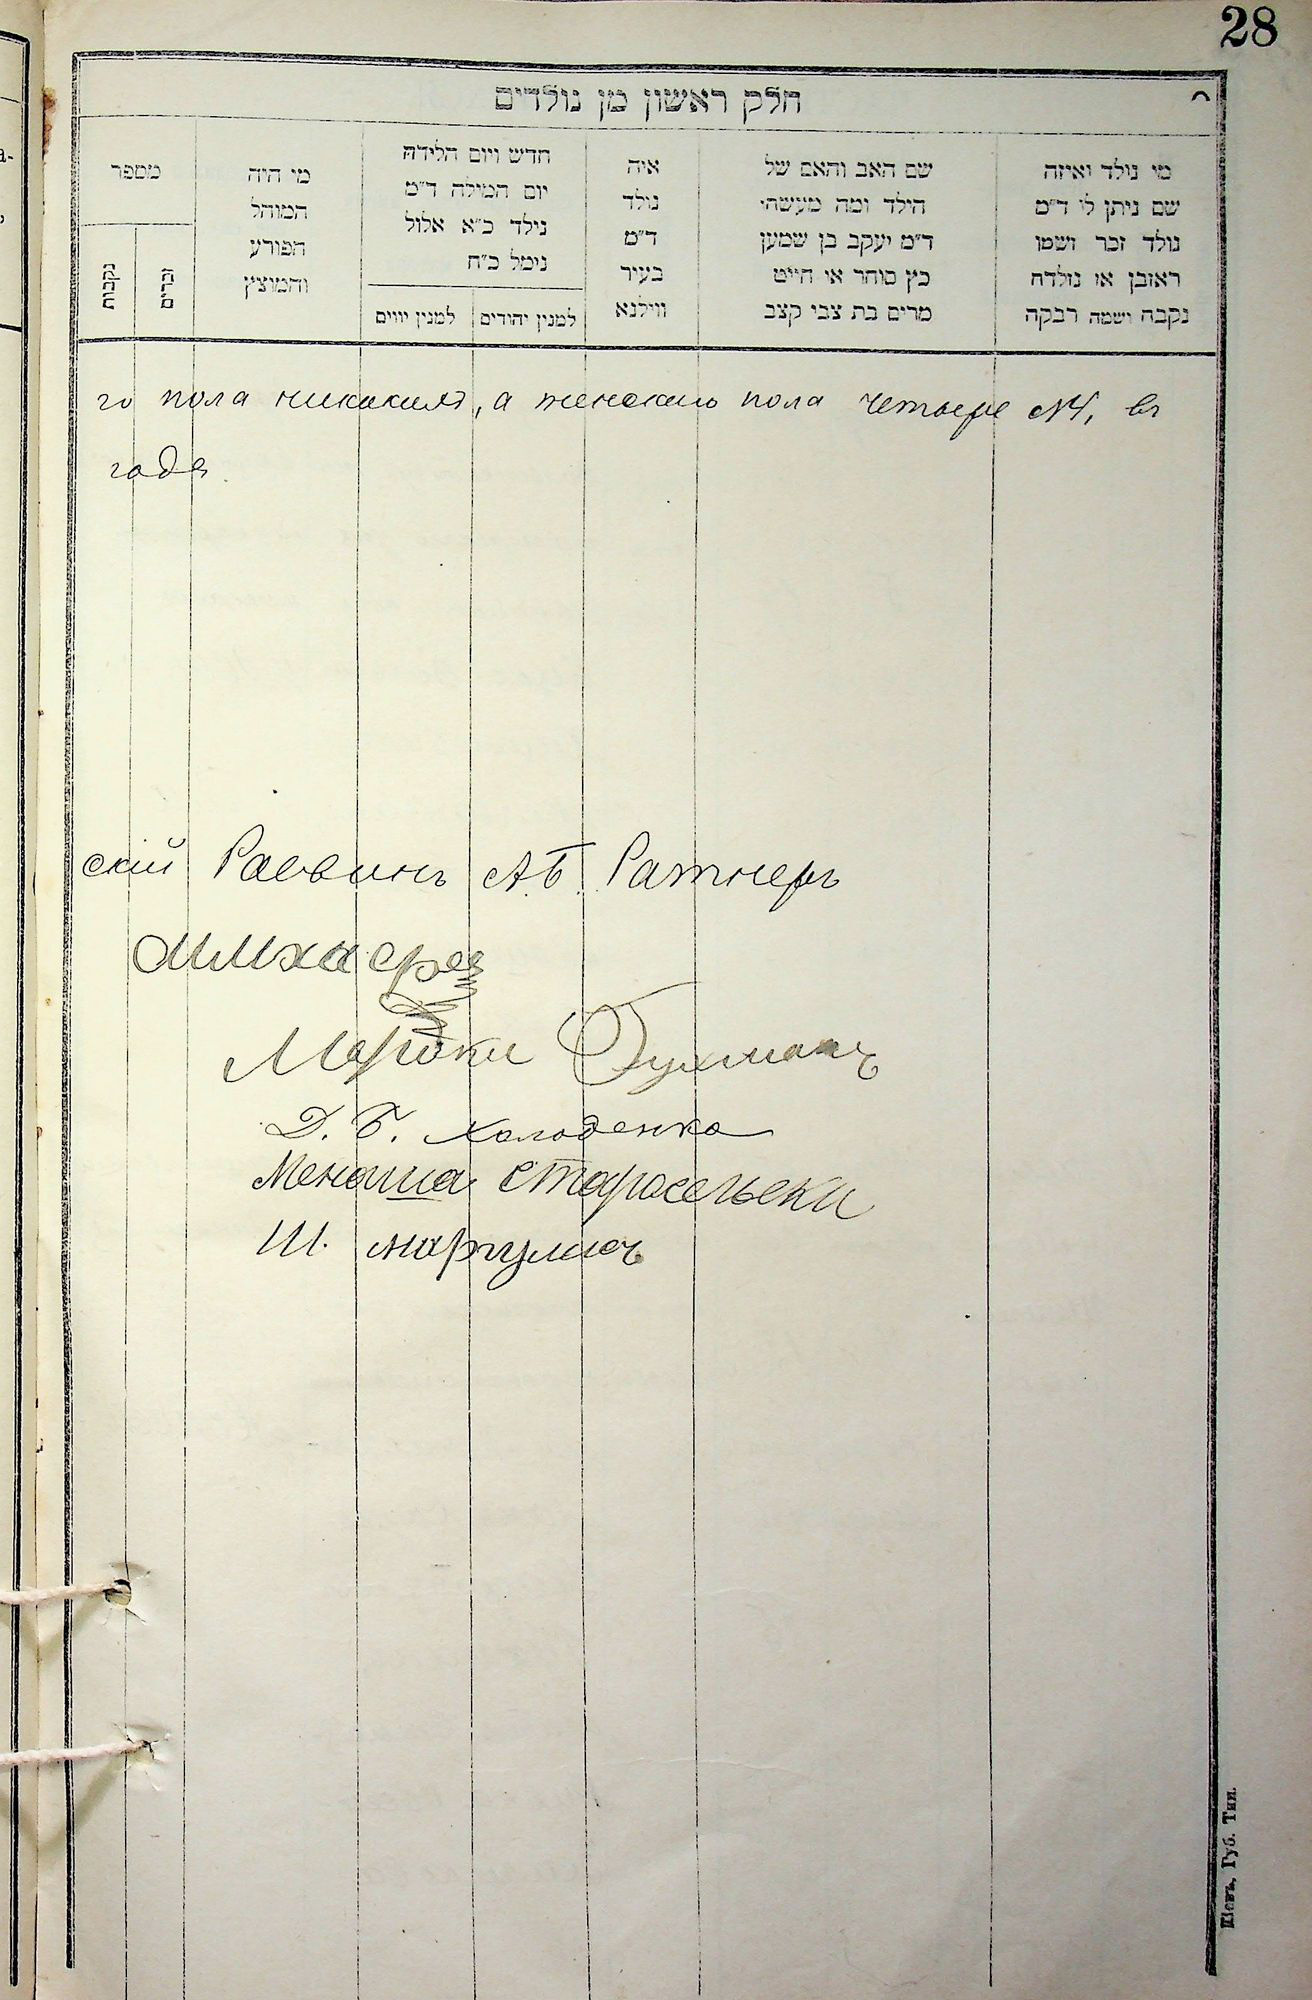 28
חלק ראשון מן נולדים
מי נולד ואיזה
שם ניתן לי ד״מ
נולד זכר ושמו
ראובן או נולדה
נקבה ושמה רבקה
שם האב והאם של
הילד ומה מעשה׳
ד״מ יעקב בן שמעון
כץ סוחר או חייט
מרים בת צבי קצב
איה
נולד
ד״מ
בעיר
ווילנא
חדש ויום הלידה
יום המילה ד״מ
נילד כ״א אלול
נימל כ״ח
למנין יהודים
למנין יווים
מי היה
המוהל
הפורע
והמוצץ
מספר
זכרים
נקבות
го пола никакихъ, а женскаго пола четыре №4, въ
годѣ
скій Раввинъ А.Б. Ратнеръ
Мордки Бухманъ
Д. Б. Холоденко
Менаша Старосельски
Ш. Маргулисъ
Кіевъ, Губ. Тип.